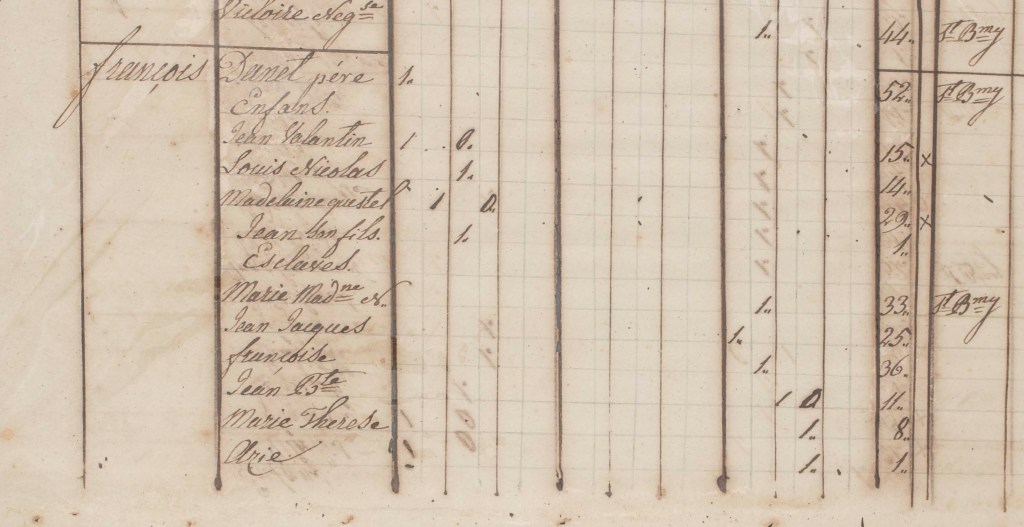 Victoire Neg.se 1.. 44.. St Bmy
françois Danet pére 1.. 52.. St Bmy
Enfans.
Jean Valantin 1 0.. 15.. x
Louis Nicolas 1.. 14..
Madelaine questel 1 0.. 29.. x
Jean son fils. 1.. 1..
Esclaves.
Marie Madne N. 1.. 33.. St Bmy
Jean Jacques 1.. 25..
françoise 1.. 36..
Jean Bte 1 0 11..
Marie Therese 1.. 8..
1.. 1..